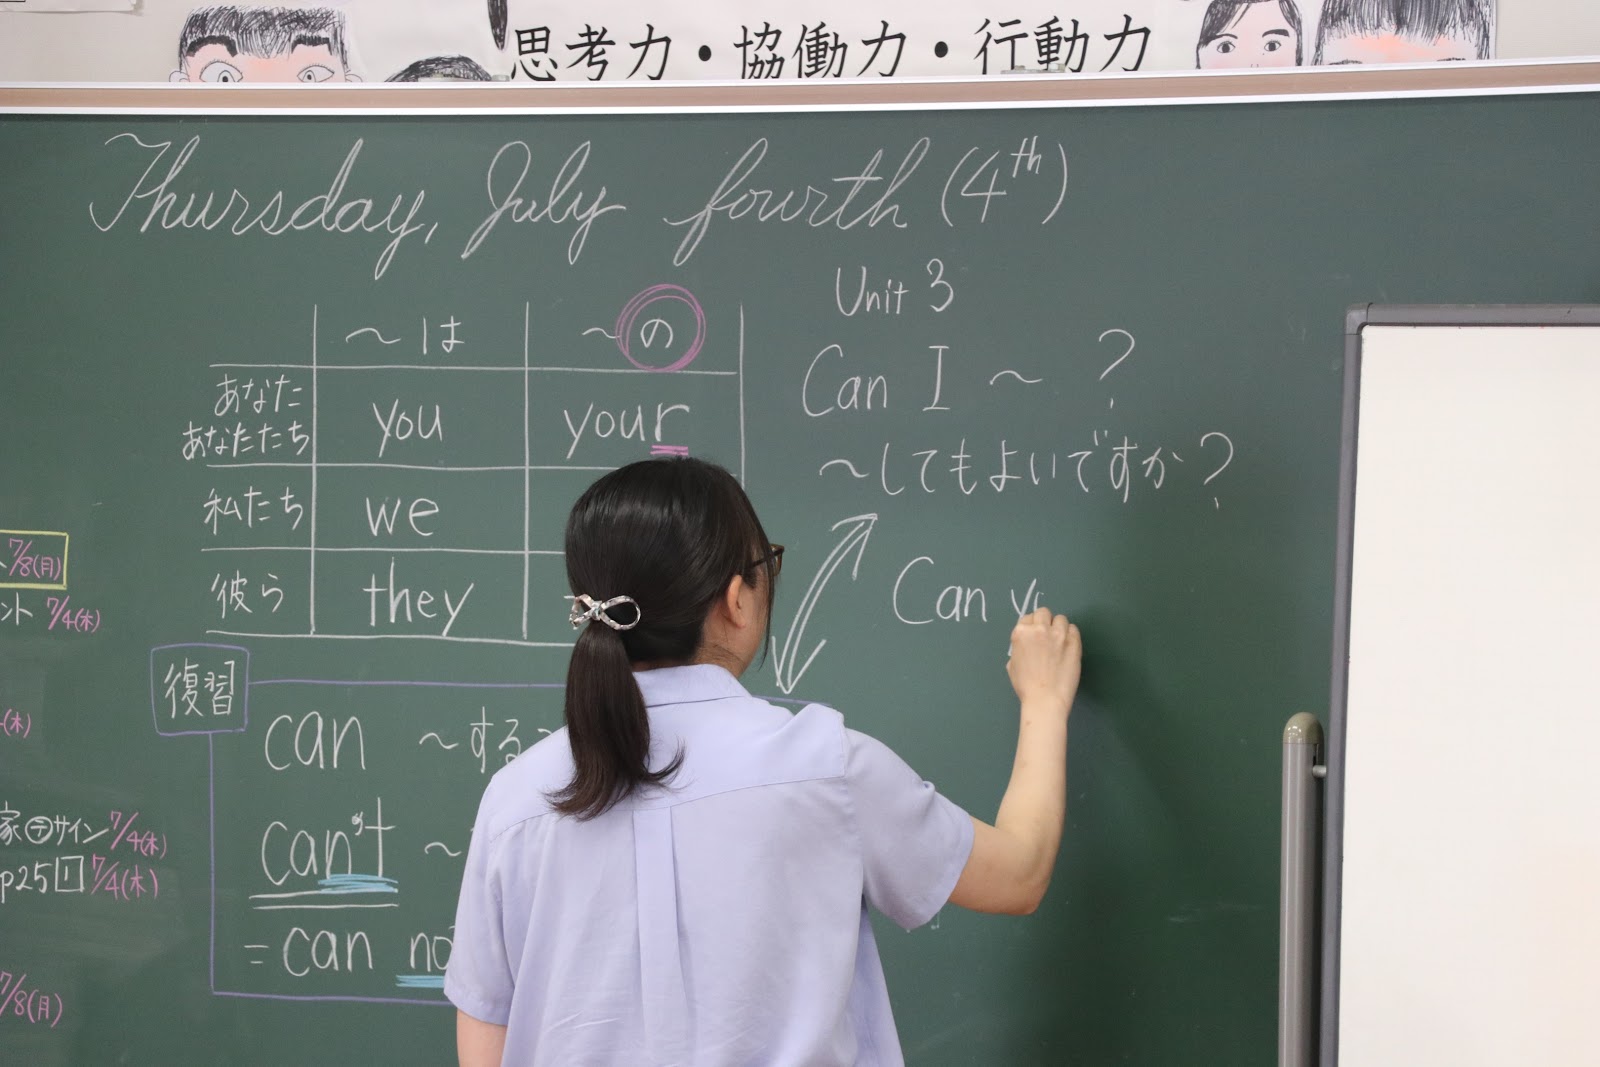 思考力・協働力・行動力
Thursday, July fourth (4th)
～は ～の
あなた
あなたたち you your
私たち we
彼ら they
Unit 3
Can I ～ ?
～してもよいですか?
Can yo
復習
can ～する
can't ～
= can no
7/8(月)
ント 7/4(木)
(木)
家 サイン 7/4(木)
p25 1 7/4(木)
7/8(月)